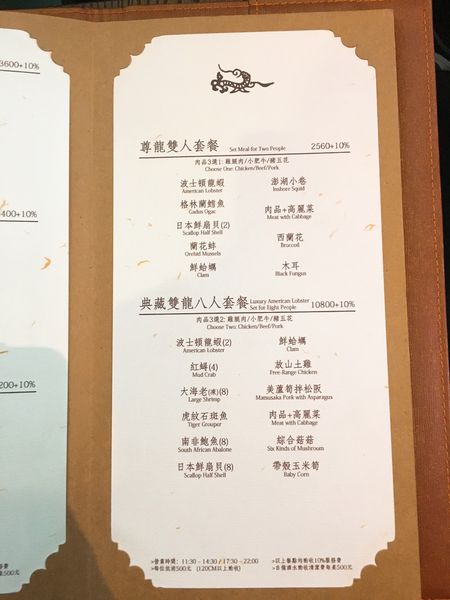 3600+10%
400+10%
200+10%
費
桌500元
尊龍雙人套餐 Set Meal for Two People 2560+10%
肉品3選1: 雞腿肉/小肥牛/豬五花
Choose One: Chicken/Beef/Pork
波士頓龍蝦 澎湖小卷
American Lobster Inshore Squid
格林蘭鱈魚 肉品+高麗菜
Gadus Ogac Meat with Cabbage
日本鮮扇貝(2) 西蘭花
Scallop Half Shell Broccoli
蘭花蚌 木耳
Orchid Mussels Black Fungus
鮮蛤蠣
Clam
典藏雙龍八人套餐 Luxury American Lobster Set for Eight People 10800+10%
肉品3選2: 雞腿肉/小肥牛/豬五花
Choose Two: Chicken/Beef/Pork
波士頓龍蝦(2) 鮮蛤蠣
American Lobster Clam
紅蟳(4) 放山土雞
Mud Crab Free-Range Chicken
大海老(凍)(8) 美蘆筍拌松阪
Large Shrimp Matsusaka Pork with Asparagus
虎紋石斑魚 肉品+高麗菜
Tiger Grouper Meat with Cabbage
南非鮑魚(8) 綜合菇菇
South African Abalone Six Kinds of Mushroom
日本鮮扇貝(8) 帶殼玉米筍
Scallop Half Shell Baby Corn
>營業時間: 11:30 - 14:30 / 17:30 - 22:00 >以上餐點均酌收10%服務費
>每位低消500元 (120CM以上酌收) >自備酒水酌收清潔費每桌500元